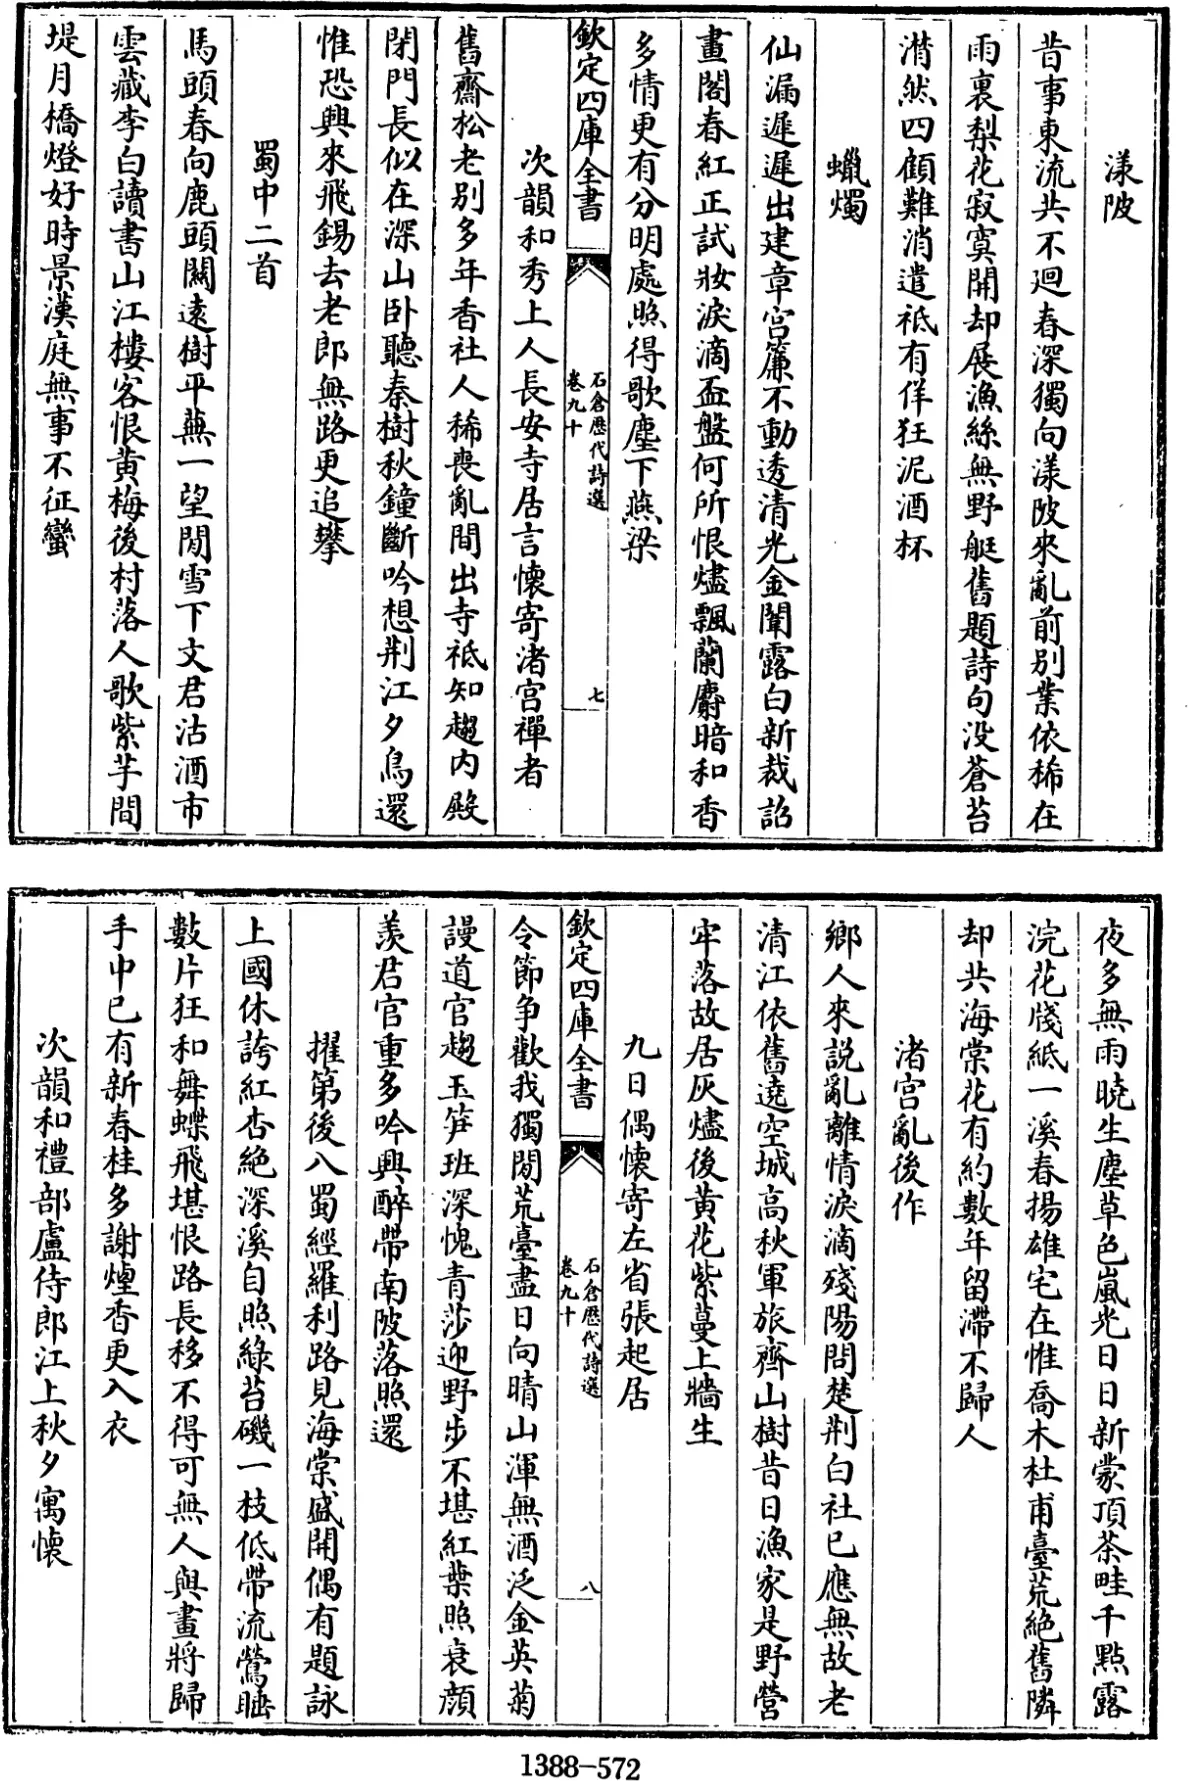 渼陂
昔事東流共不迴春深獨向渼陂來亂前别業依稀在
雨裏棃花寂寞開却展漁絲無野艇舊題詩句没蒼苔
潸然四顧難消遣祇有佯狂泥酒杯
蠟燭
仙漏遲遲出建章宫簾不動透清光金闈露白新裁詔
畫閣春紅正試妝淚滴盃盤何所恨燼飄蘭麝暗和香
多情更有分明處照得歌塵下燕梁
欽定四庫全書
石倉歷代詩選
卷九十
七
次韻和秀上人長安寺居言懷寄渚宫禪者
舊齋松老别多年香社人稀喪亂間出寺祇知趨内殿
閉門長似在深山卧聽秦樹秋鐘斷吟想荆江夕鳥還
惟恐興來飛錫去老郎無路更追攀
蜀中二首
馬頭春向鹿頭關逺樹平蕪一望閒雪下文君沽酒市
雲藏李白讀書山江樓客恨黄梅後村落人歌紫芋間
堤月橋燈好時景漢庭無事不征蠻
夜多無雨曉生塵草色嵐光日日新蒙頂茶畦千點露
浣花牋紙一溪春揚雄宅在惟喬木杜甫臺荒絶舊隣
却共海棠花有約數年留滯不歸人
渚宫亂後作
鄉人來説亂離情淚滴殘陽問楚荆白社已應無故老
清江依舊遶空城高秋軍旅齊山樹昔日漁家是野營
牢落故居灰燼後黄花紫蔓上牆生
九日偶懷寄左省張起居
欽定四庫全書
石倉歷代詩選
卷九十
八
令節争歡我獨閒荒臺盡日向晴山渾無酒泛金英菊
謾道官趨玉笋班深愧青莎迎野步不堪紅葉照衰顔
羡君官重多吟興醉帶南陂落照還
擢第後入蜀經羅利路見海棠盛開偶有題詠
上國休誇紅杏絶深溪自照緑苔磯一枝低帶流鶯睡
數片狂和舞蝶飛堪恨路長移不得可無人與畫將歸
手中已有新春桂多謝煙香更入衣
次韻和禮部盧侍郎江上秋夕寓懷
1388-572